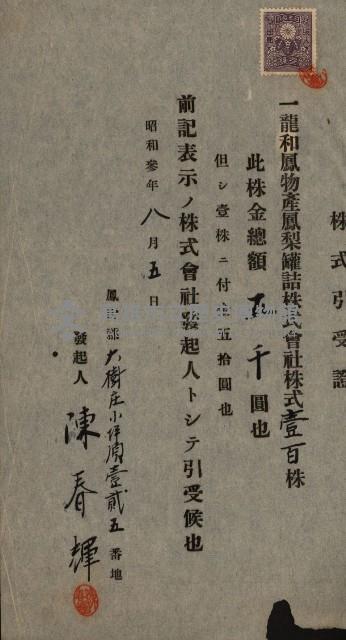 株式引受證
一龍和鳳物產鳳梨罐詰株式會社株式壹百株
此株金總額五千圓也
但シ壹株ニ付金五拾圓也
前記表示ノ株式會社發起人トシテ引受候也
昭和參年八月五日
鳳山郡大樹庄小坪頂壹貳五番地
發起人 陳春輝